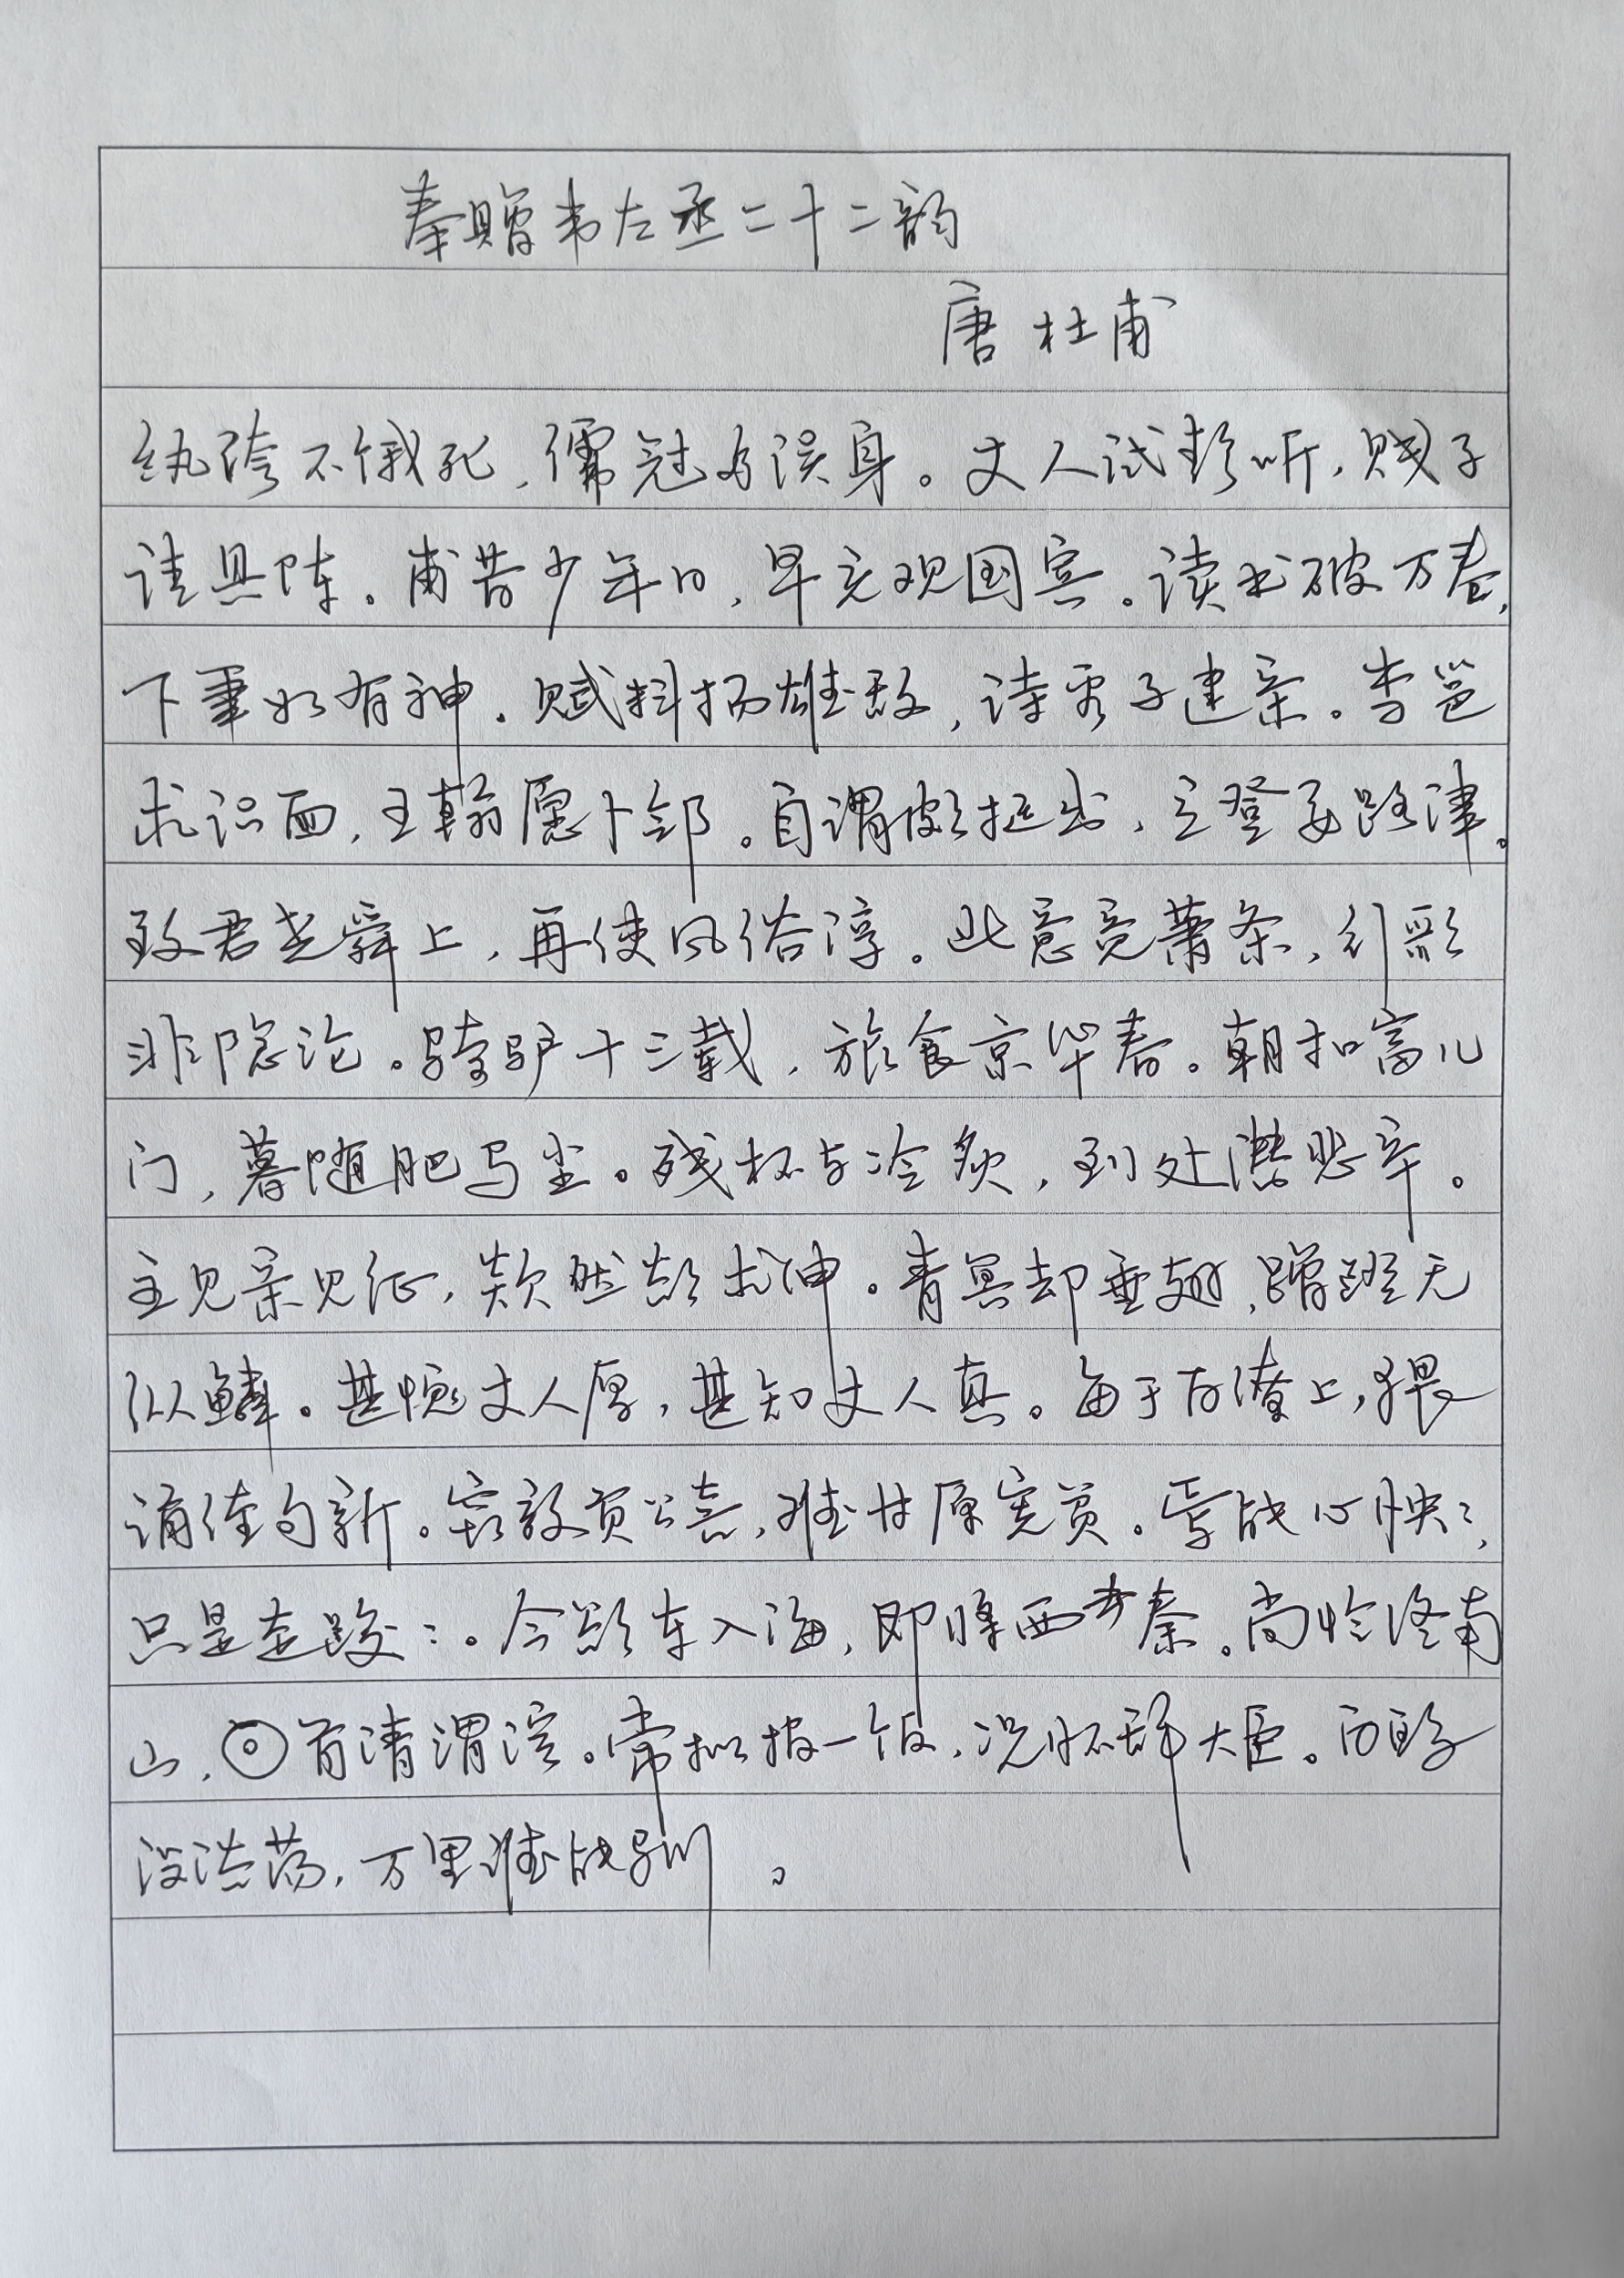 奉赠韦左丞二十二韵
唐 杜甫
纨绔不饿死,儒冠多误身。丈人试静听,贱子
请具陈。甫昔少年日,早充观国宾。读书破万卷,
下笔如有神。赋料扬雄敌,诗看子建亲。李邕
求识面,王翰愿卜邻。自谓颇挺出,立登要路津。
致君尧舜上,再使风俗淳。此意竟萧条,行歌
非隐沦。骑驴十三载,旅食京华春。朝扣富儿
门,暮随肥马尘。残杯与冷炙,到处潜悲辛。
主见亲见征,欻然欲求伸。青冥却垂翅,蹭蹬无
纵鳞。甚愧丈人厚,甚知丈人真。每于百僚上,猥
诵佳句新。窃效贡公喜,难甘原宪贫。焉能心怏怏,
只是走踆踆。今欲东入海,即将西去秦。尚怜终南
山,回首清渭滨。常拟报一饭,况怀辞大臣。白鸥
没浩荡,万里谁能驯。